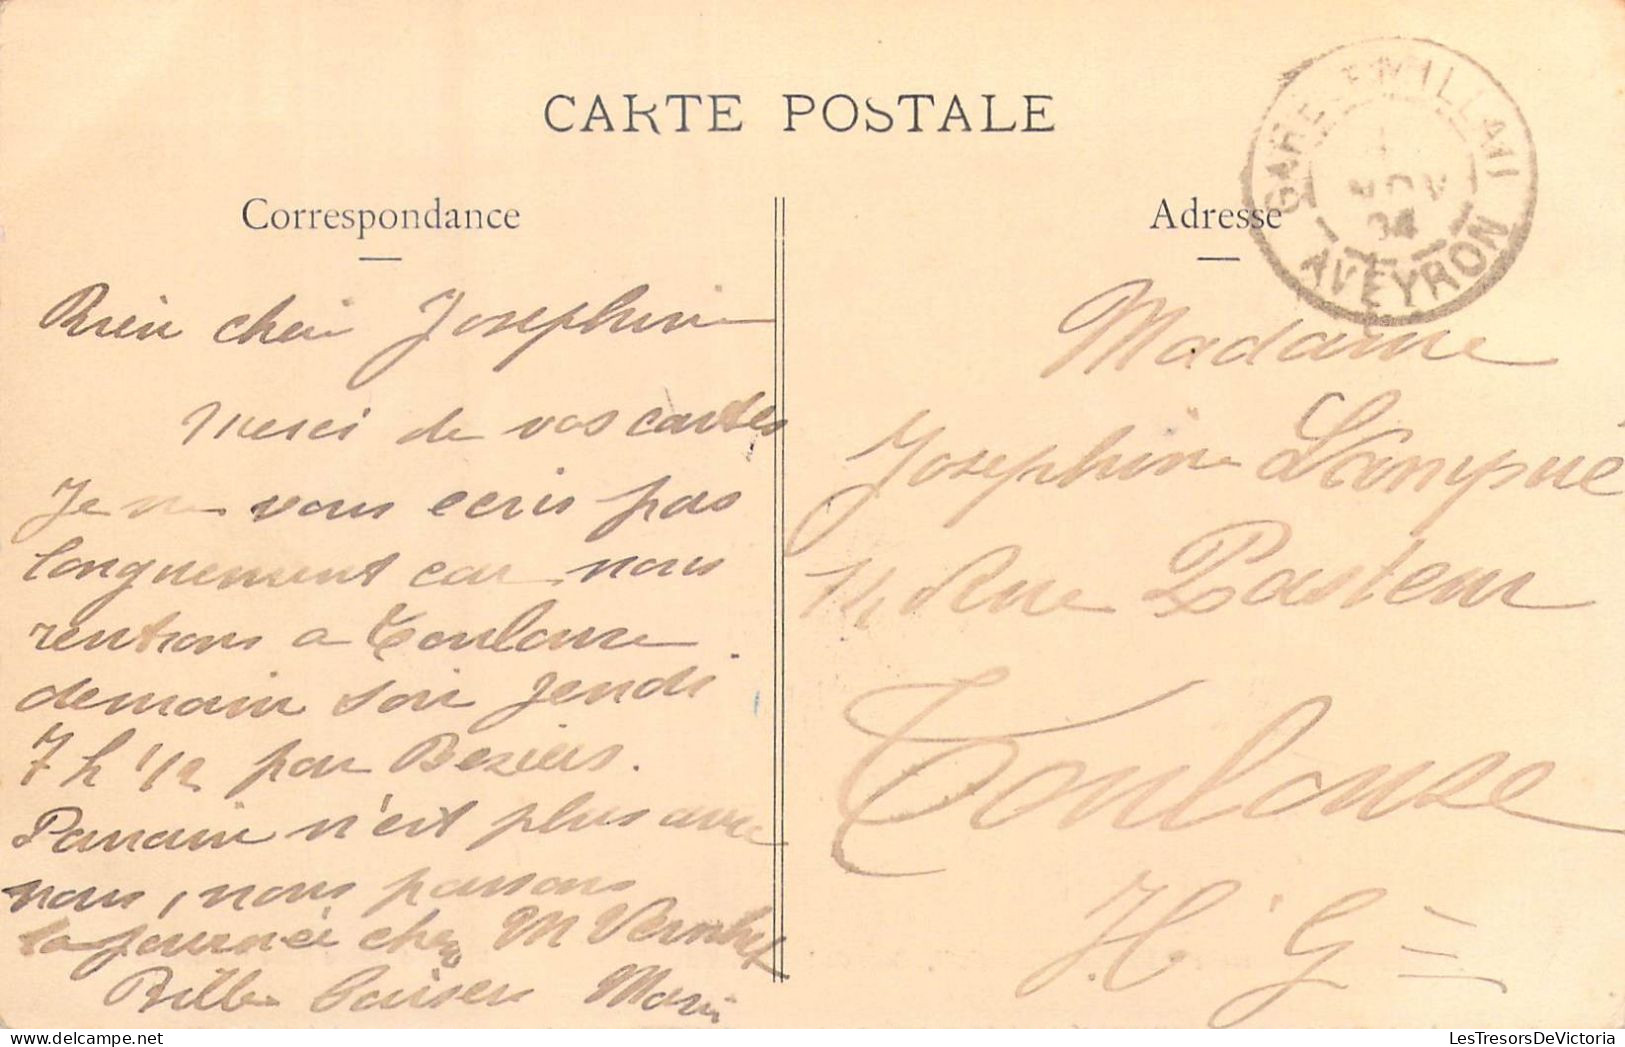 CARTE POSTALE
Correspondance
Adresse
GARE DE MILLAU
NOV
04
AVEYRON
Bien chère Josephine
Merci de vos cartes
Je ne vous ecris pas
longuement car nous
rentrons a Toulouse
demain soir jeudi
7 h 1/2 par Beziers.
n'est plus avec
nous, nous passons
la journée chez M
baisers Marie
Madame
Josephine Lampué
14 Rue Pasteur
Toulouse
H. G
LesTresorsDeVictoria